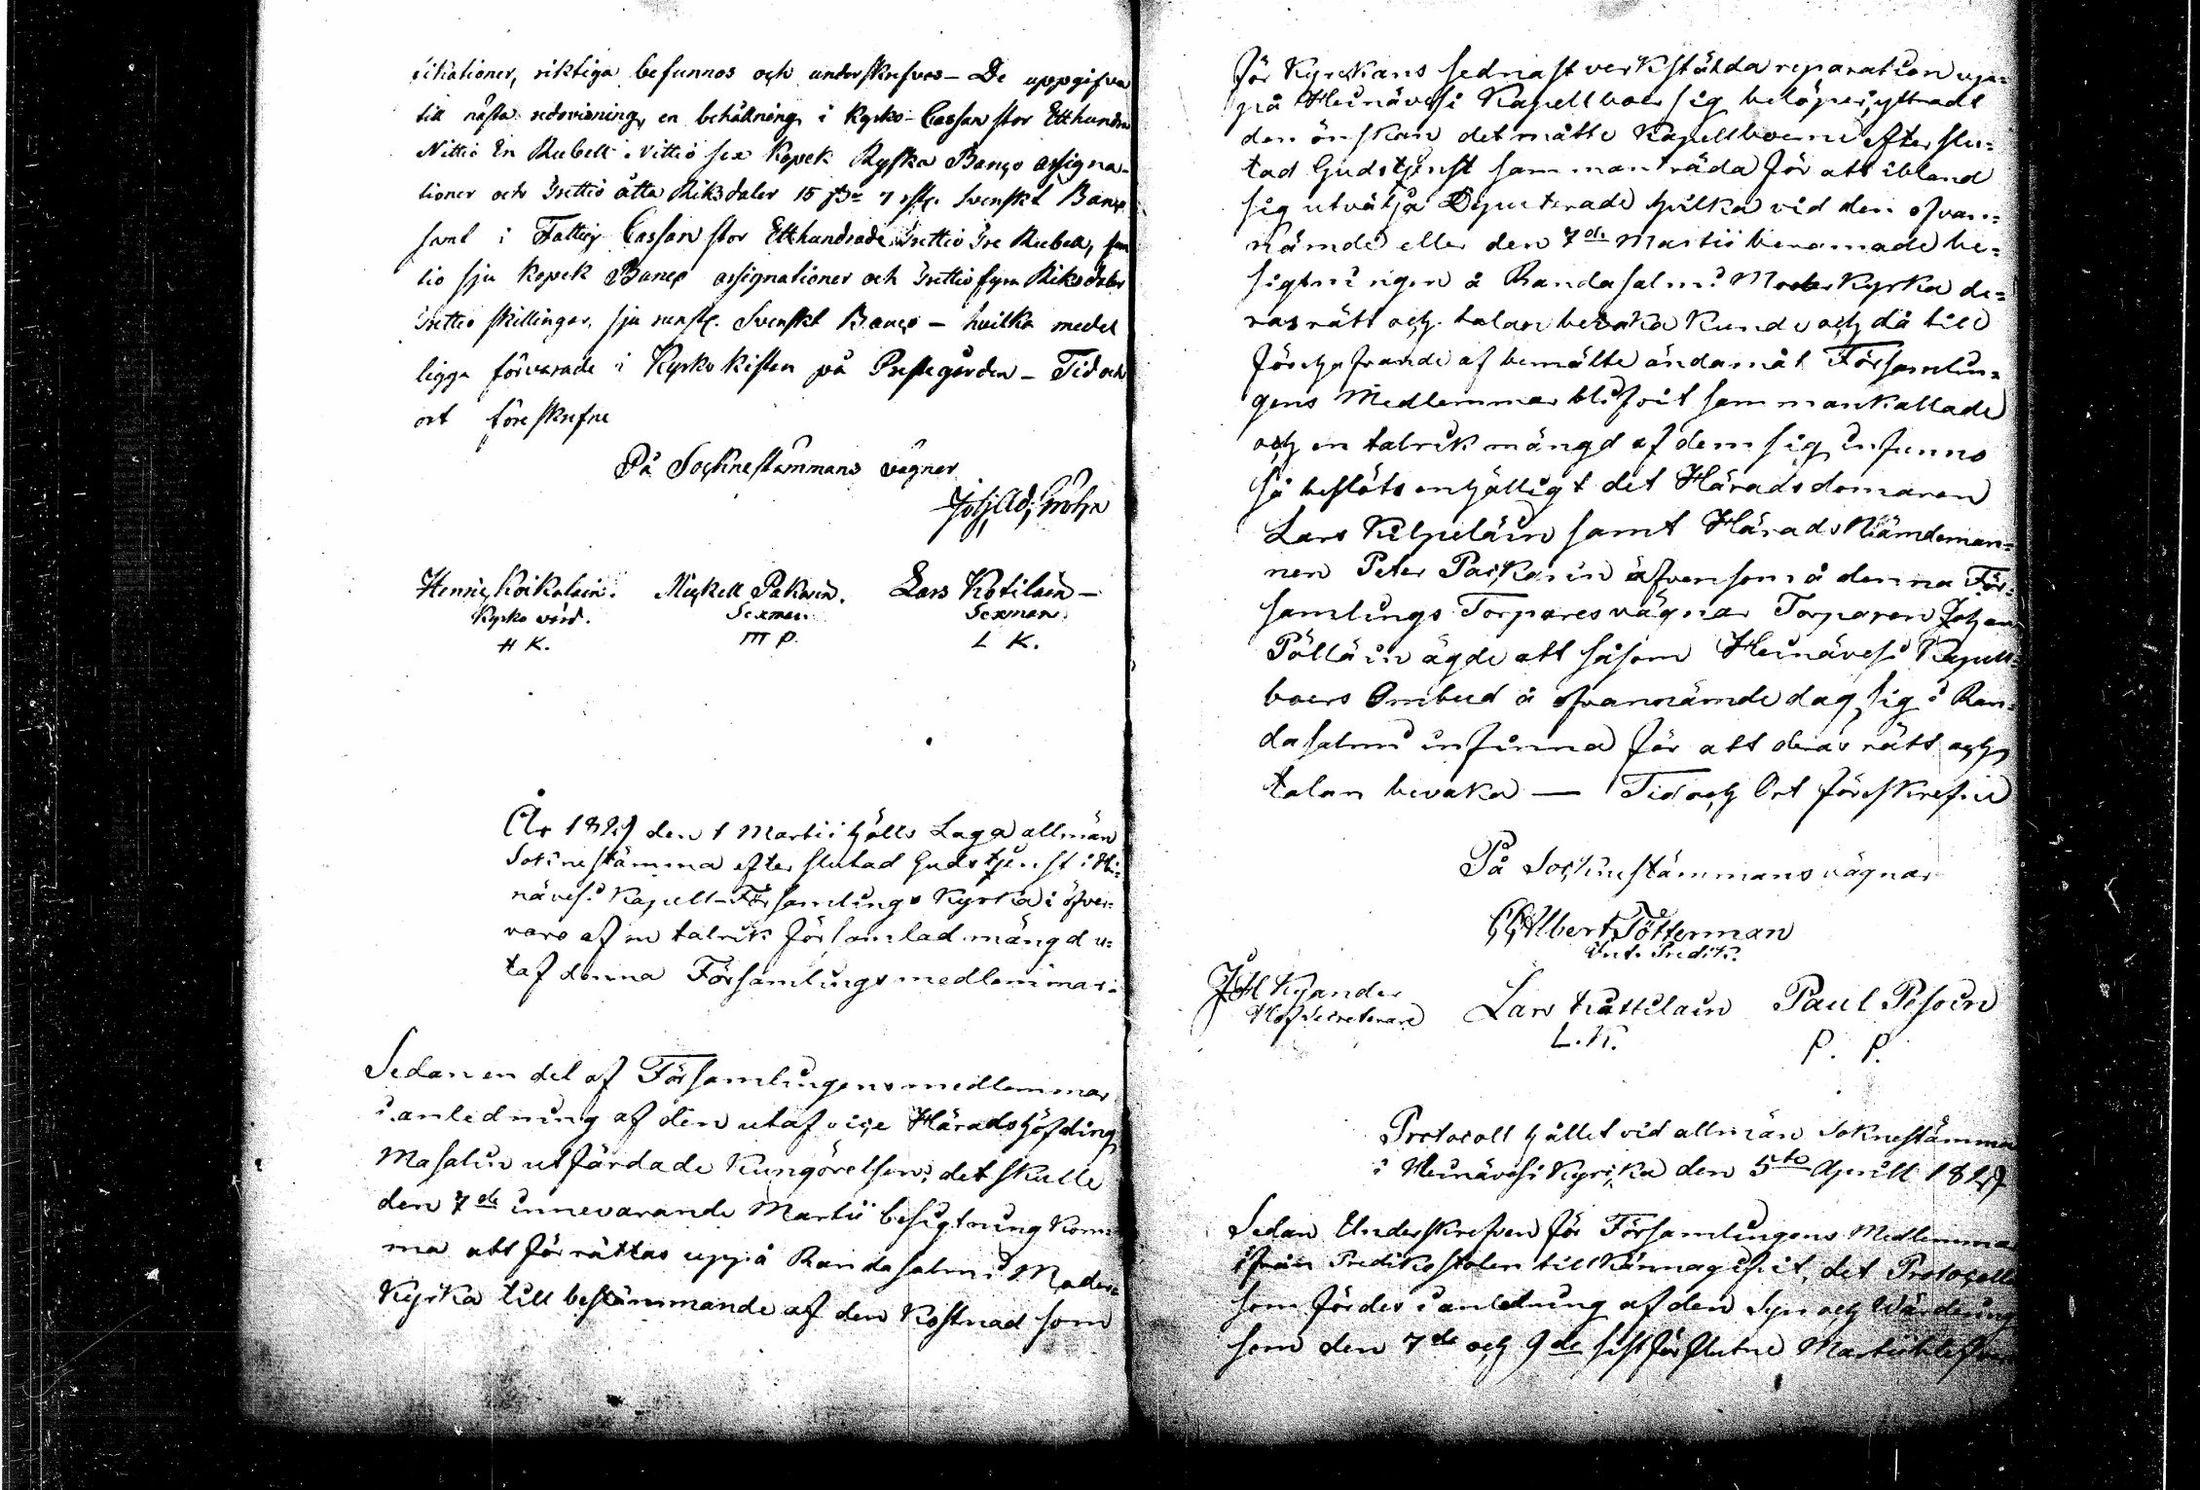 riktiga befunnos och underskrefvos – De uppgifva
till nästa redovisning, en behållning i Kyrko-Cassan stor Etthundra
Nittio En Rubell Nittio sex Kopek Ryska Banco assigna-
tioner och Trettio åtta Riksdaler 15 7 Svenskt Banco
samt i Fattig Cassan stor Etthundrade Trettio Tre Rubell,
tio sju Kopek Banco assignationer och Trettio fyra Riksdaler
Trettio skillingar, sju Svenskt Banco – hvilka medel
ligga förvarade i Kyrko kistan på Prestegården – Tid och
ort föreskrefne
På Socknestämmans vägnar
Joh. Ad. Grohn
Henric Koikalain. Mickell Pakarin. Lars Kotilain –
Kyrko värd. Sexman. Sexman.
H K. M P. L K.
År 1827 den 1 Martii hölls Laga allmän
Soknestämma efter slutad Gudstjenst i Hei-
nävesi Kapell-Församlings Kyrka i öfver-
varo af en talrik församlad mängd u-
taf denna Församlings medlemmar.
Sedan en del af Församlingens medlemmar
i anledning af den utaf vice Häradshöfding
Masalin utfärdade Kungörelsen; det skulle
den 7de innevarande Martii besigtning kom-
ma att förrättas uppå Randasalmi Moder-
Kyrka till bestämmande af den Kostnad som
för Kyrckans sednast verkstälda reparation upp-
på Heinävesi Kapellboer sig belöper, yttrade
den önskan det måtte Kapellboerne efter slu-
tad Gudstjenst sammanträda för att ibland
sig utvälja Deputerade hvilka vid den ofvan-
nämde eller den 7de Martii benamade be-
sigtningen å Randasalmi Moder Kyrka de-
ras rätt och talan bevaka Kunde och då till
af bemälte ändamål Församlin-
gens Medlemmar blifvit sammankallade
och en talrik mängd af dem sig infunno
så beslöts enhälligt det Häradsdomaren
Lars Kilpeläin samt Härads Nämdeman-
nen Peter Paskarin äfvensom å denna För-
samlings Torpares vägnar Torparen Johan
Pölläin ägde att såsom Heinävesi Kapell-
boers Ombud å ofvannämde dag sig i Ran-
dasalmi infinna för att deras rätt och
talan bevaka — Tid och Ort föreskrefne
På Sockinstämmans vägnar
Albert Tötterman
J H Kyander
Hofsecreterare
Lars Kattilain Paul Pesoin
L. K. P. P.
Protocoll hållet vid allmän Soknestämma
i Heinävesi Kyrka den 5te Aprill 1827
Sedan Underskrefven för Församlingens Medlemmar
ifrån Predikostolen till Kännagifvit, det Protocoll
som fördes i anledning af den Syn och Värdering
som den 7de och 9de sistförflutne Martii